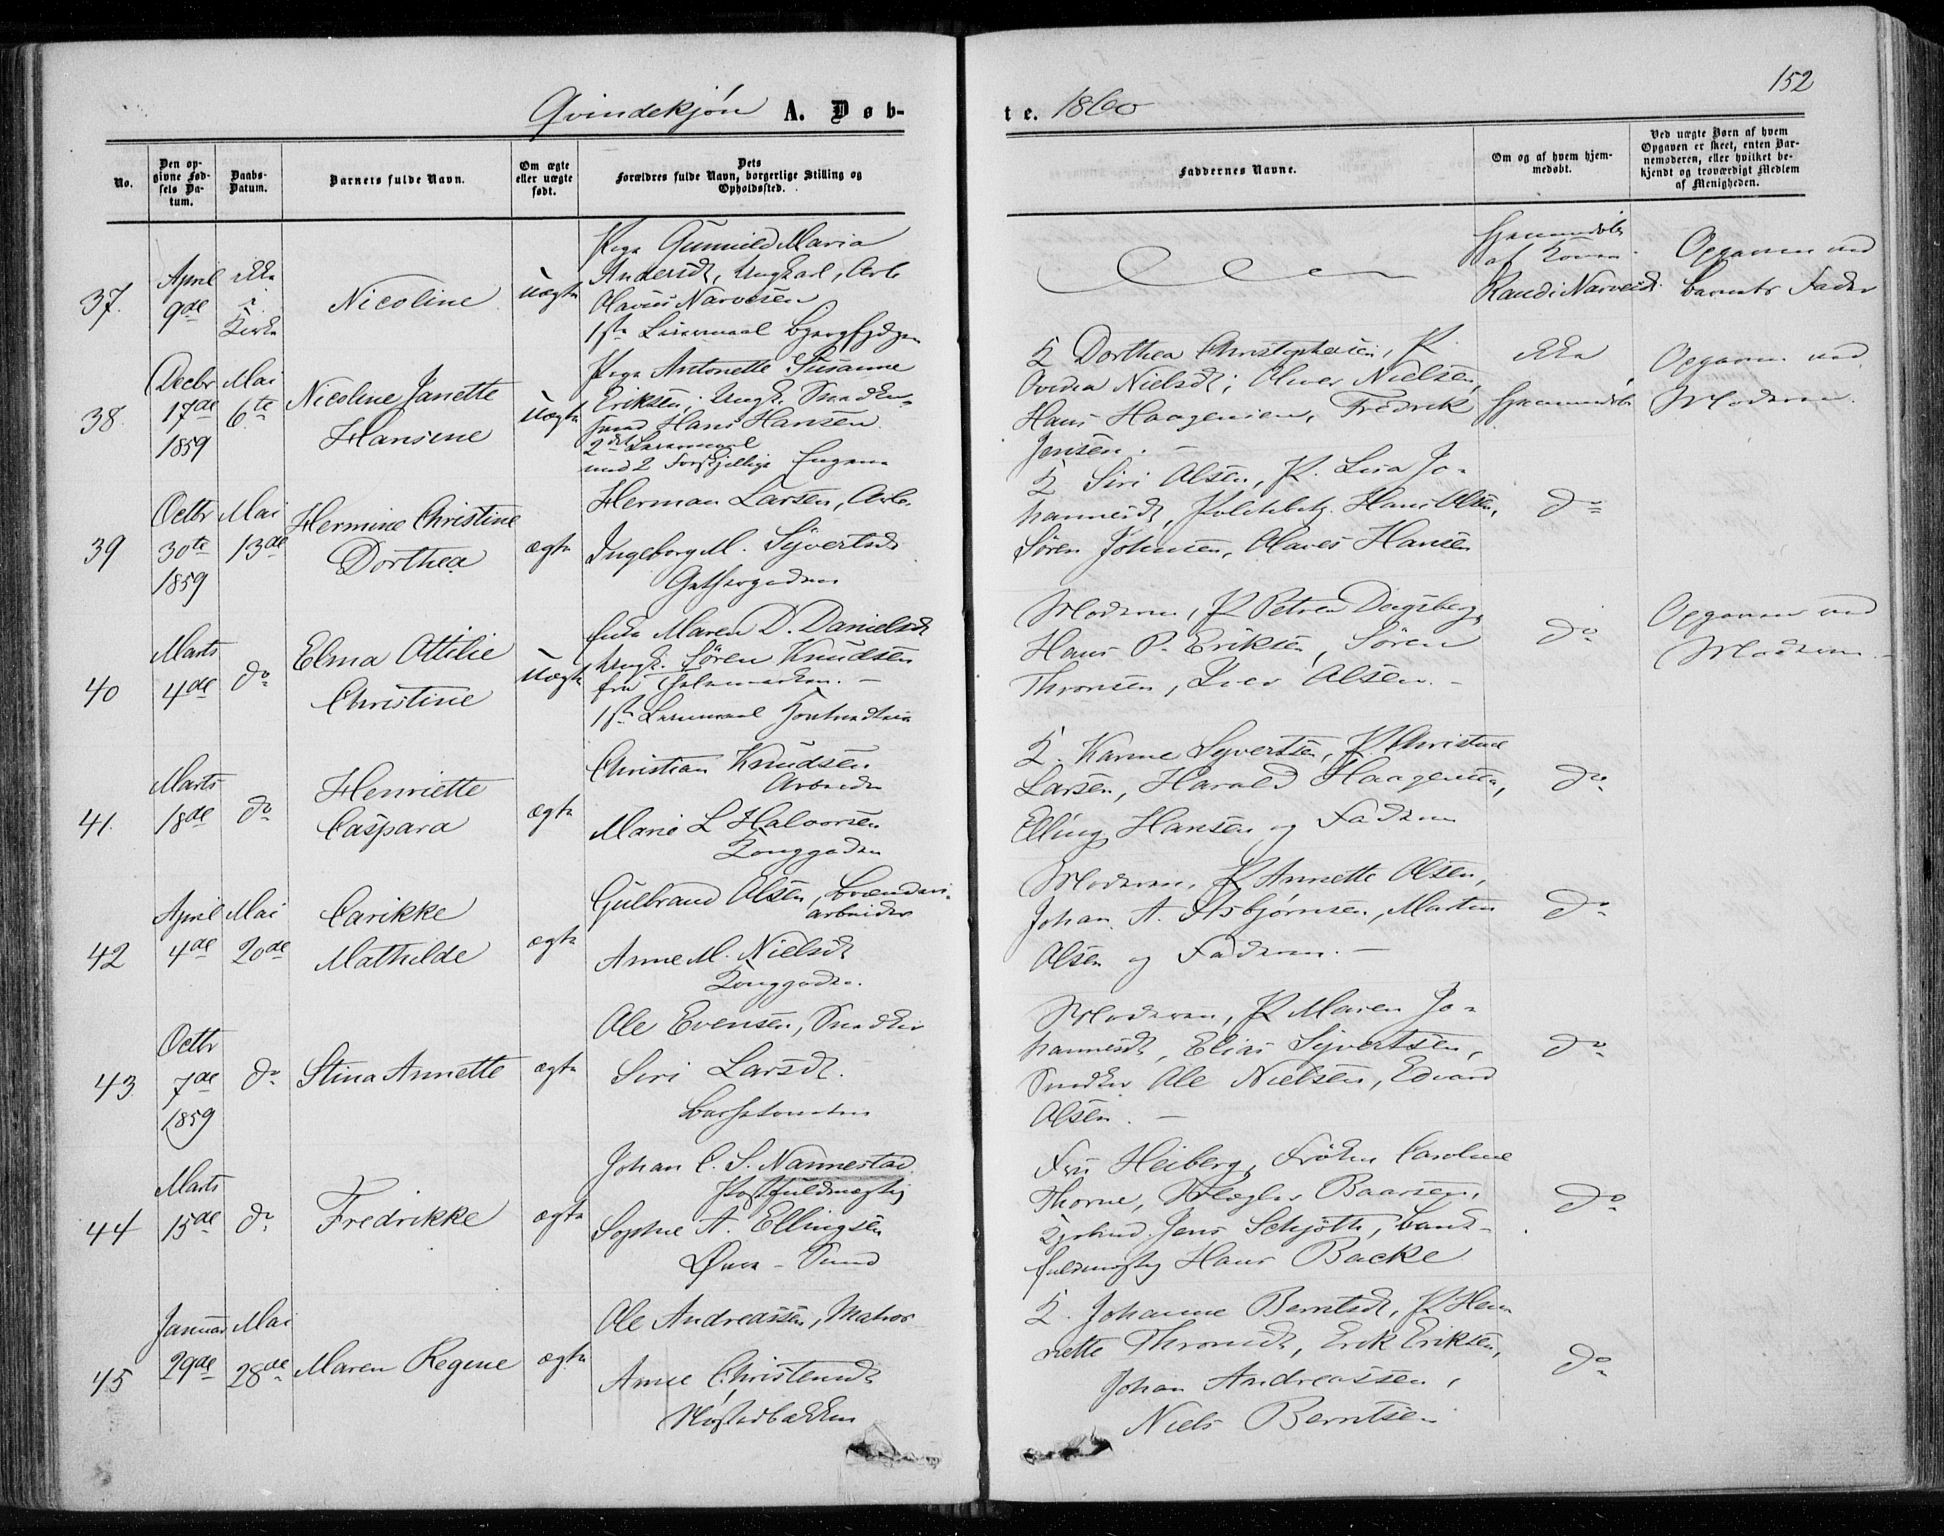 152
Qvindekjøn A. Døb-
te. 1860
No.
Den op-
givne Fød-
sels Da-
tum.
Daabs-
Datum.
Barnets fulde Navn.
Om ægte
eller uægte
født.
Dets
Forældres fulde Navn, borgerlige Stilling og
Opholdssted.
Faddernes Navne.
Om og af hvem hjem-
medøbt.
Ved uægte Børn af hvem
Opgaven er skeet, enten Bar-
nemoderen, eller hvilket be-
kjendt og troværdigt Medlem
af Menigheden.
37.
April
9de
ikke
i
Kirke
Nicoline
uægte
Pige Gunnild Maria
Andersdt, Ungkarl, Arb.
Olavus Narvesen
1ste Leiermaal
Hjemmedøbt
af Konen
Randi Narvesdt.
Opgaven ved
barnets Fader
38.
Decbr
17de
1859
Mai
6te
Nicoline Janette
Hansine
uægte
Pige Antonette Susanne
Eriksen. Ungk. Snedker-
svend Hans Hansen
2det Leiermaal
med 2 forskjellige Engene
K Dorthea Christophersen, P.
Ovedia Nielsdt; Oliver Nielsen,
Hans Haagensen, Fredrik
Jensen. -
ikke
hjemmedøbt
Opgaven ved
Moderen.
39
Octbr
30te
1859
Mai
13de
Hermine Christine
Dorthea
ægte
Herman Larsen, Arb.
Ingeborg M. Syvertsdt
K Siri Olsen, P. Lisa Jo-
hannesdt, Politibetj. Hans Olsen,
Søren Johnsen, Olaves Hansen
do
40
Marts
4de
do
Elma Ottilie
Christine
uægte
Enke Maren D. Danielsdt
Ungk. Søren Knudsen
fra
1ste Leiermaal
Moderen, P Petrea Dengsberg,
Hans P. Eriksen, Søren
Thronsen, Iver Olsen. -
do
Opgaven ved
Moderen. -
41.
Marts
18de
do
Henriette
Caspara
ægte
Christian Knudsen
Arbeider
Marie L Halvorsen
Konggaden
K. Karine Syvertsen, P Christine
Larsen, Harald Haagensen,
Elling Hansen og Faderen
do
42
April
4de
Mai
20de
Carikke
Mathilde
ægte
Gulbrand Olsen, Brænderi-
arbeider
Anne M. Nielsdt
Konggaden.
Moderen, P Annette Olsen,
Johan A. Asbjørnsen, Martin
Olsen og Faderen. -
do
43
Octbr
7de
1859
do
Stina Annette
ægte
Ole Evensen, Snedker
Siri Larsdt.
Moderen, P Maren Jo-
hannesdt, Elias Syvertsen,
Snedker Ole Nielsen, Edvard
Olsen. -
do
44
Marts
15de
do
Fredrikke
ægte
Johan C. S. Nannestad.
Postfuldmægtig
Sophie A. Ellingsen
Øvre - Sund
Fru Heiberg, Frøken Caroline
Thorne, Baarsen,
Kjøbmd. Jens Schjøtt, Bank-
fuldmægtig Hans Backe
do
45
Januar
29de
Mai
28de
Maren Regine
ægte
Ole Andreassen, Matros
Anne Christensdt
Høstadbakken
K. Johanne Berntsdt, P Hen-
riette Thronsdt, Erik Eriksen,
Johan Andreassen,
Niels Berntsen
do